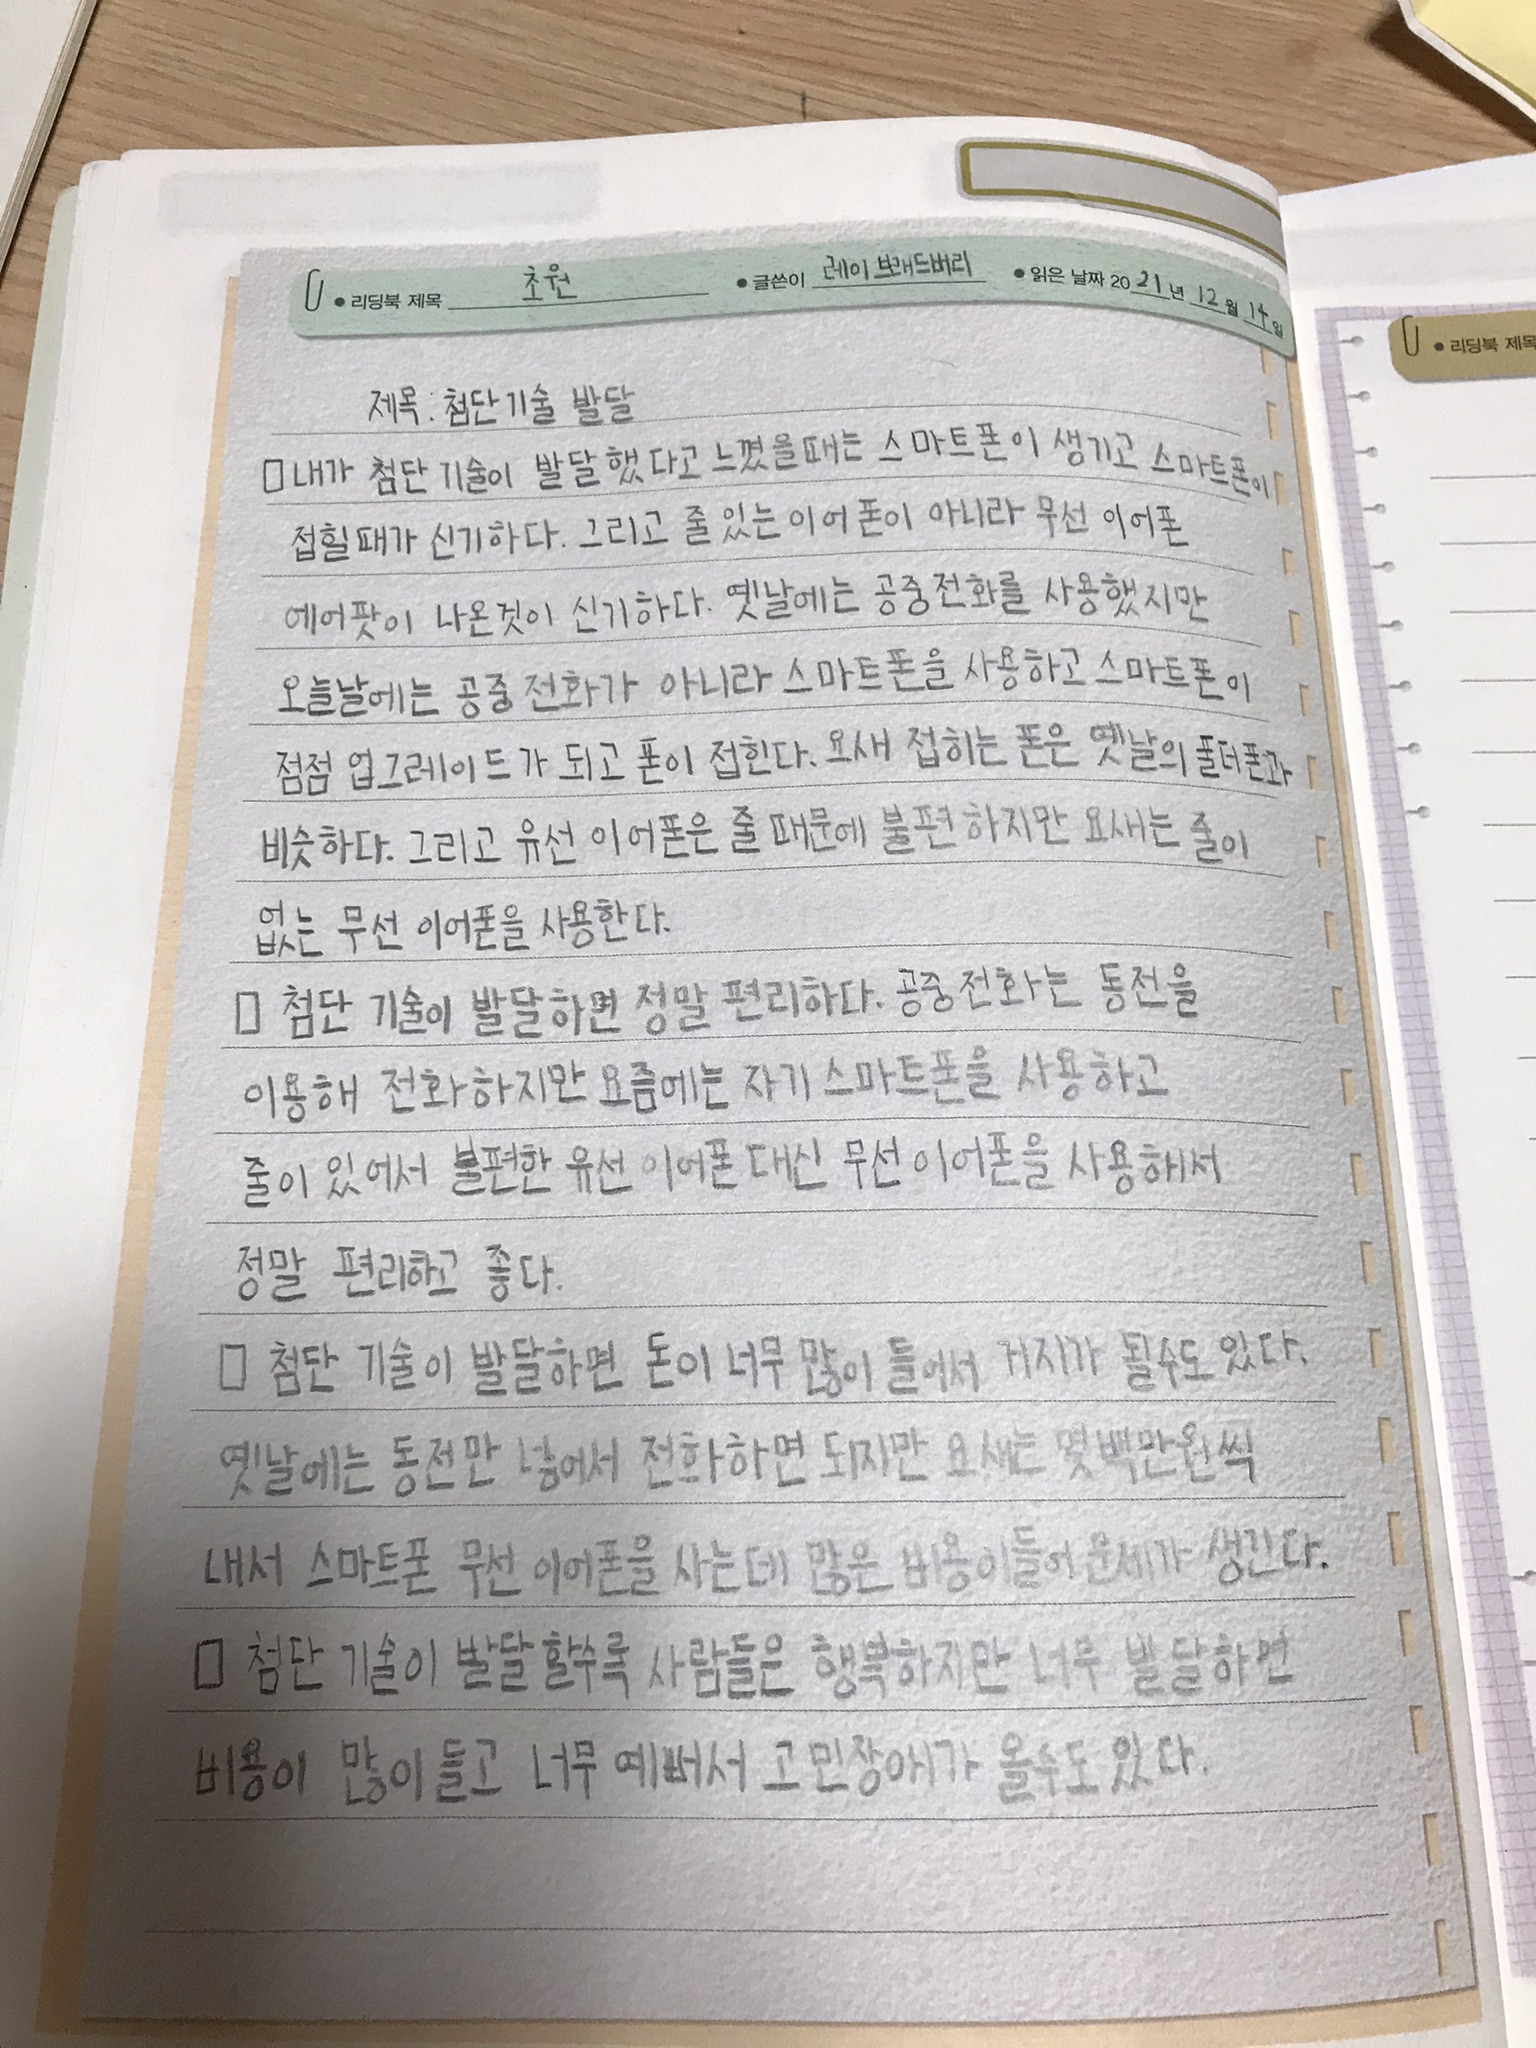 ● 리딩북 제목 초원 ● 글쓴이 레이 브래드버리 ● 읽은 날짜 2021년 12월 14일
제목 : 첨단기술 발달
□내가 첨단 기술이 발달했다고 느꼈을때는 스마트폰이 생기고 스마트폰이
접힐때가 신기하다. 그리고 줄있는이어폰이 아니라 무선 이어폰
에어팟이 나온것이 신기하다. 옛날에는 공중전화를 사용했지만
오늘날에는 공중전화가 아니라 스마트폰을 사용하고 스마트폰이
점점 업그레이드가 되고 폰이 접힌다. 요새 접히는 폰은 옛날의 폴더폰과
비슷하다. 그리고 유선 이어폰은 줄 때문에 불편하지만 요새는 줄이
없는 무선 이어폰을 사용한다.
□ 첨단 기술이 발달하면 정말 편리하다. 공중전화는 동전을
이용해 전화하지만 요즘에는 자기 스마트폰을 사용하고
줄이 있어서 불편한 유선 이어폰 대신 무선 이어폰을 사용해서
정말 편리하고 좋다.
□ 첨단 기술이 발달하면 돈이 너무 많이 들어서 거지가 될수도 있다.
옛날에는 동전만 넣어서 전화하면 되지만 요새는 몇백만원씩
내서 스마트폰 무선 이어폰을 사는데 많은 비용이들어 문제가 생긴다.
□ 첨단 기술이 발달할수록 사람들은 행복하지만 너무 발달하면
비용이 많이 들고 너무 예뻐서 고민장애가 올수도 있다.
● 리딩북 제목